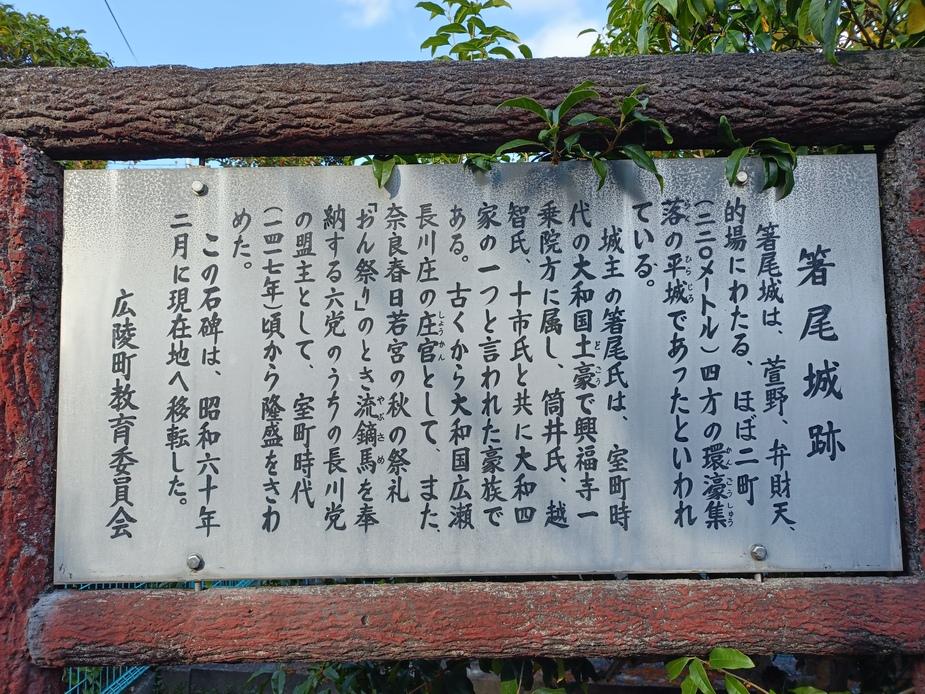 箸尾城跡
箸尾城は、萱野、弁財天、
的場にわたる、ほぼ二町
(二二〇メートル)四方の環濠集
落の平城であったといわれ
ている。
城主の箸尾氏は、室町時
代の大和国土豪で興福寺一
乗院方に属し、筒井氏、越
智氏、十市氏と共に大和四
家の一つと言われた豪族で
ある。古くから大和国広瀬
長川庄の庄官として、また、
奈良春日若宮の秋の祭礼
「おん祭り」のとき流鏑馬を奉
納する六党のうちの長川党
の盟主として、室町時代
(一四一七年)頃から隆盛をきわ
めた。
この石碑は、昭和六十年
二月に現在地へ移転した。
広陵町教育委員会